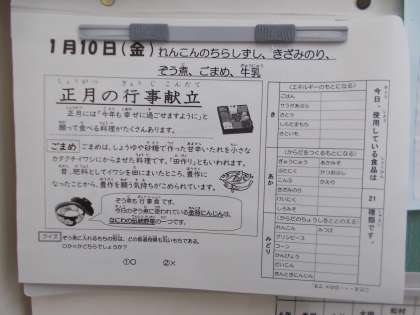 1月10日(金)れんこんのちらしずし、きざみのり、
ぞう煮、ごまめ、牛乳
しょうがつ ぎょうじこんだて
正月の行事献立
正月には「今年も幸せに過ごせますように」と
願って食べる料理がたくさんあります。
ごまめ
ごまめは、しょうゆや砂糖で作った甘辛いたれを小さな
カタクチイワシにからませた料理です。「田作り」ともいわれます。
昔、肥料としてイワシを田にまいたところ、豊作に
なったことから、豊作を願う気持ちがこめられています。
ぞう煮も行事食です。
今日のぞう煮に使われている金時にんじんは、
なにわの伝統野菜の一つです。
クイズ
ぞう煮に入れるもちの形は、どの都道府県も丸いもちである。
○か×かどちらでしょうか?
①○ ②×
今日、使用している食品は
21
種類です。
き
(エネルギーのもとになる)
ごはん
さとう
さといも
あか
(からだをつくるもとになる)
ぎゅうにゅう
あぶらあげ
とりにく
みそ
こんぶ
かつおぶし
きざみのり
けいにく
しろみそ
みどり
(からだのちょうしをととのえる)
れんこん
みつば
グリンピース
コーン
かんぴょう
だいこん
きんときにんじん